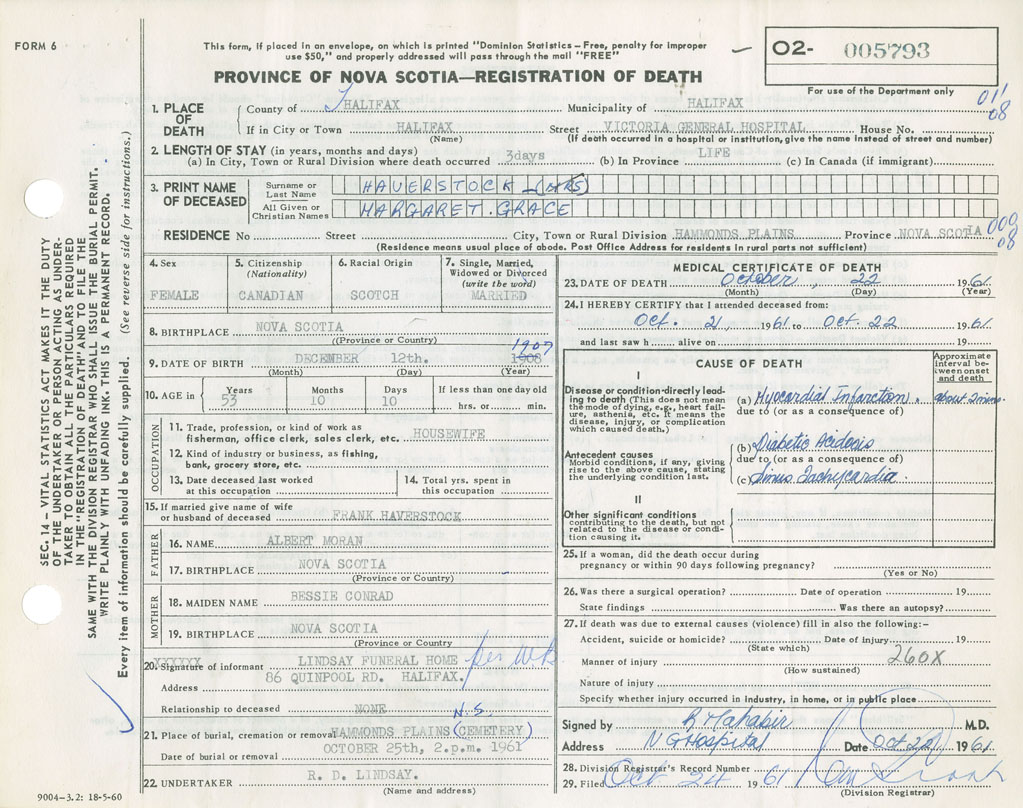 FORM 6
This form, if placed in an envelope, on which is printed "Dominion Statistics – Free, penalty for improper
use $50," and properly addressed will pass through the mail "FREE"
02- 005793
For use of the Department only
PROVINCE OF NOVA SCOTIA—REGISTRATION OF DEATH
011
08
1. PLACE OF DEATH
County of HALIFAX Municipality of HALIFAX
If in City or Town HALIFAX Street VICTORIA GENERAL HOSPITAL House No.
(Name) (If death occurred in a hospital or institution, give the name instead of street and number)
2. LENGTH OF STAY (in years, months and days)
(a) In City, Town or Rural Division where death occurred 3days (b) In Province LIFE (c) In Canada (if immigrant)
3. PRINT NAME OF DECEASED
Surname or Last Name HAVERSTOCK (MRS)
All Given or Christian Names MARGARET. GRACE
RESIDENCE No Street City, Town or Rural Division HAMMONDS PLAINS Province NOVA SCOTIA
000
08
(Residence means usual place of abode. Post Office Address for residents in rural parts not sufficient)
4. Sex
FEMALE
5. Citizenship
(Nationality)
CANADIAN
6. Racial Origin
SCOTCH
7. Single, Married,
Widowed or Divorced
(write the word)
MARRIED
8. BIRTHPLACE NOVA SCOTIA
(Province or Country)
1907
9. DATE OF BIRTH DECEMBER 12th. 1908
(Month) (Day) (Year)
10. AGE in
Years Months Days If less than one day old
53 10 10 hrs. or min.
OCCUPATION
11. Trade, profession, or kind of work as
fisherman, office clerk, sales clerk, etc. HOUSEWIFE
12. Kind of industry or business, as fishing,
bank, grocery store, etc.
13. Date deceased last worked
at this occupation
14. Total yrs. spent in
this occupation
15. If married give name of wife
or husband of deceased FRANK HAVERSTOCK
FATHER
16. NAME ALBERT MORAN
17. BIRTHPLACE NOVA SCOTIA
(Province or Country)
MOTHER
18. MAIDEN NAME BESSIE CONRAD
19. BIRTHPLACE NOVA SCOTIA
(Province or Country
XXXXXX
20. Signature of informant LINDSAY FUNERAL HOME per
Address 86 QUINPOOL RD. HALIFAX.
Relationship to deceased NONE N.S.
21. Place of burial, cremation or removal HAMMONDS PLAINS (CEMETERY)
Date of burial or removal OCTOBER 25th, 2.p.m. 1961
22. UNDERTAKER R. D. LINDSAY.
(Name and address)
9004-3.2: 18-5-60
MEDICAL CERTIFICATE OF DEATH
23. DATE OF DEATH October, 22 1961
(Month) (Day) (Year)
24. I HEREBY CERTIFY that I attended deceased from:
Oct. 21, 1961 to Oct. 22 1961
and last saw h alive on 19
CAUSE OF DEATH
Approximate
interval be-
tween onset
and death
I
Disease or condition directly lead-
ing to death (This does not mean
the mode of dying, e.g., heart fail-
ure, asthenia, etc. It means the
disease, injury, or complication
which caused death.)
(a) Myocardial Infarction.
due to (or as a consequence of)
Antecedent causes
Morbid conditions, if any, giving
rise to the above cause, stating
the underlying condition last.
(b) Diabetic Acidosis
due to (or as a consequence of)
(c) Sinus Tachycardia.
II
Other significant conditions
contributing to the death, but not
related to the disease or condi-
tion causing it.
25. If a woman, did the death occur during
pregnancy or within 90 days following pregnancy?
(Yes or No)
26. Was there a surgical operation? Date of operation 19
State findings Was there an autopsy?
27. If death was due to external causes (violence) fill in also the following:–
Accident, suicide or homicide? Date of injury 19
(State which)
Manner of injury 260X
(How sustained)
Nature of injury
Specify whether injury occurred in industry, in home, or in public place
Signed by R Mahabir M.D.
Address V G Hospital Date Oct 22, 1961
28. Division Registrar's Record Number
29. Filed Oct 24 1961
(Division Registrar)
SEC. 14 – VITAL STATISTICS ACT MAKES IT THE DUTY
OF THE UNDERTAKER OR PERSON ACTING AS UNDER-
TAKER TO OBTAIN ALL THE PARTICULARS REQUIRED
IN THE "REGISTRATION OF DEATH" AND TO FILE THE
SAME WITH THE DIVISION REGISTRAR WHO SHALL ISSUE THE BURIAL PERMIT.
WRITE PLAINLY WITH UNFADING INK. THIS IS A PERMANENT RECORD.
Every item of information should be carefully supplied. (See reverse side for instructions.)